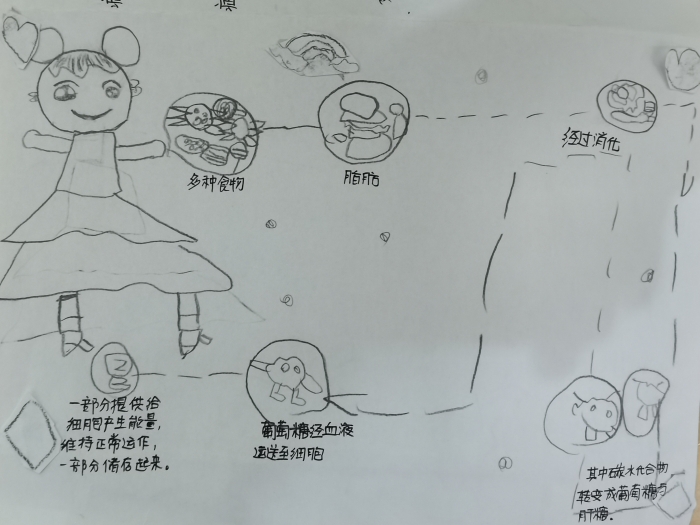 多种食物
脂肪
经过消化
其中碳水化合物
转变成葡萄糖与
肝糖.
葡萄糖经血液
运送至细胞
一部分提供给
细胞产生能量,
维持正常运作,
一部分储存起来。